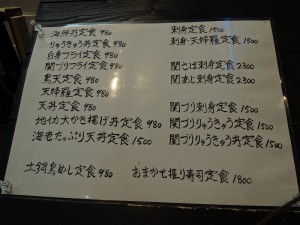 海鮮丼定食 980
りゅうきゅう丼定食 980
白身フライ定食 980
関ブリフライ定食 980
鳥天定食 980
天婦羅定食 980
天丼定食 980
地イカ大かき揚げ丼定食 980
海老たっぷり天丼定食 1500
土鍋鳥めし定食 980
刺身定食 1500
刺身・天婦羅定食 1500
関さば刺身定食 2300
関あじ刺身定食 2300
関ブリ刺身定食 1500
関ブリりゅうきゅう定食 1500
関ブリりゅうきゅう丼定食 1500
おまかせ握り寿司定食 1800